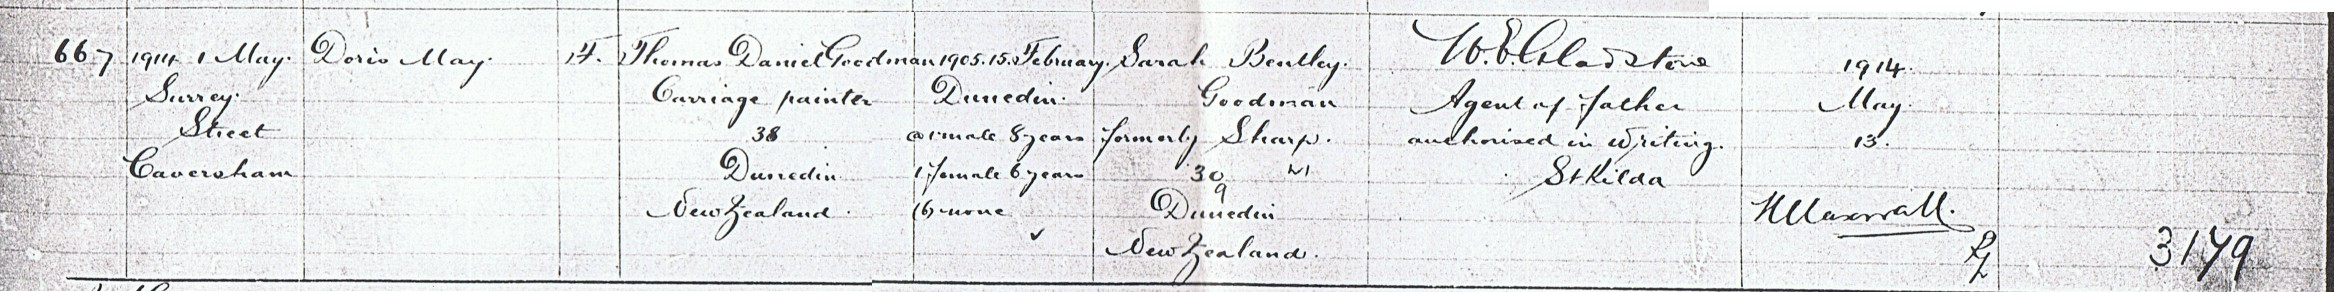 667
1914 1 May.
Surrey.
Street
Caversham
Doris May.
F.
Thomas Daniel Goodman
Carriage painter
38
Dunedin
New Zealand.
1905. 15. February.
Dunedin.
(a) 1 male 8 years
1 female 6 years
(b) none
✓
Sarah Bentley.
Goodman
formerly Sharp.
30
9
Dunedin
New Zealand.
W. E. Gladstone
Agent of father
authorised in writing.
St Kilda
1914.
May.
13.
H Maxwell.
3179